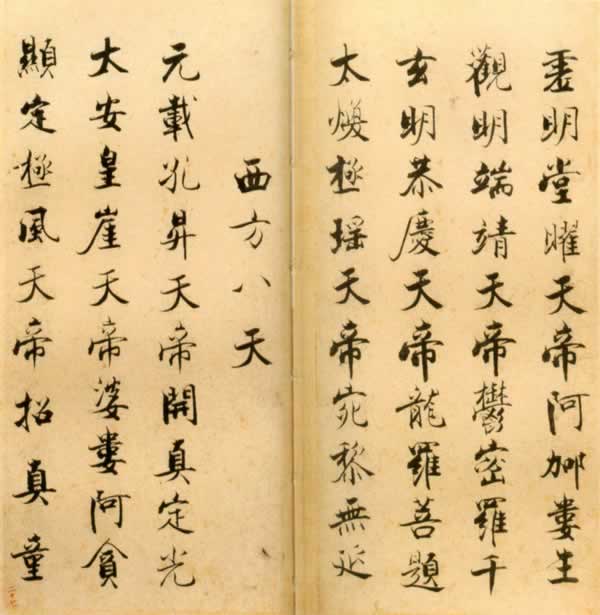 虛明堂曜天帝阿郍婁生
觀明端靖天帝鬱密羅千
玄明恭慶天帝龍羅菩題
太煥極瑤天帝宛黎無延
西方八天
元載孔昇天帝開真定光
太安皇崖天帝婆婁阿貪
顯定極風天帝招真童